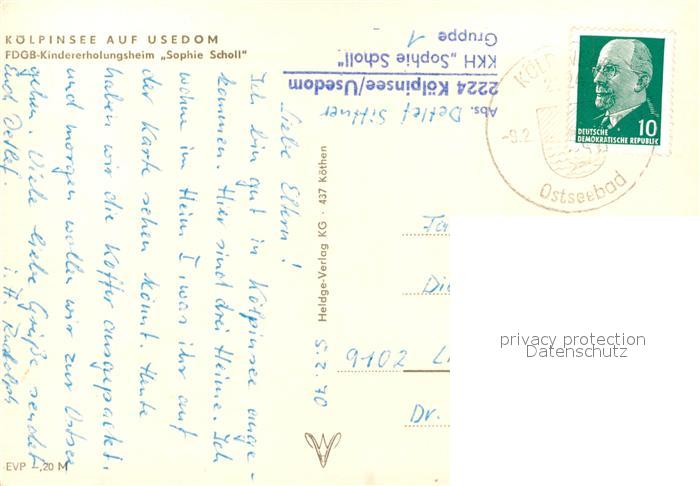 KÖLPINSEE AUF USEDOM
FDGB-Kindererholungsheim „Sophie Scholl"
Liebe Eltern!
Ich bin gut in Kölpinsee ange-
kommen. Hier sind drei Heime. Ich
wohne im Heim I, was ihr auf
der Karte sehen könnt. Heute
haben wir die Koffer ausgepackt.
und morgen wollen wir zur Ostsee
gehen. Viele liebe Grüße sendet
Euch Detlef.
i. A. Rudolph
EVP –,20 M
Heldge-Verlag KG · 437 Köthen
5.2.70
Abs. Detlef Sittner
2224 Kölpinsee/Usedom
KKH „Sophie Scholl"
Gruppe 1
-9.2
Ostseebad
10
DEUTSCHE
DEMOKRATISCHE REPUBLIK
9102
Dr.
privacy protection
Datenschutz